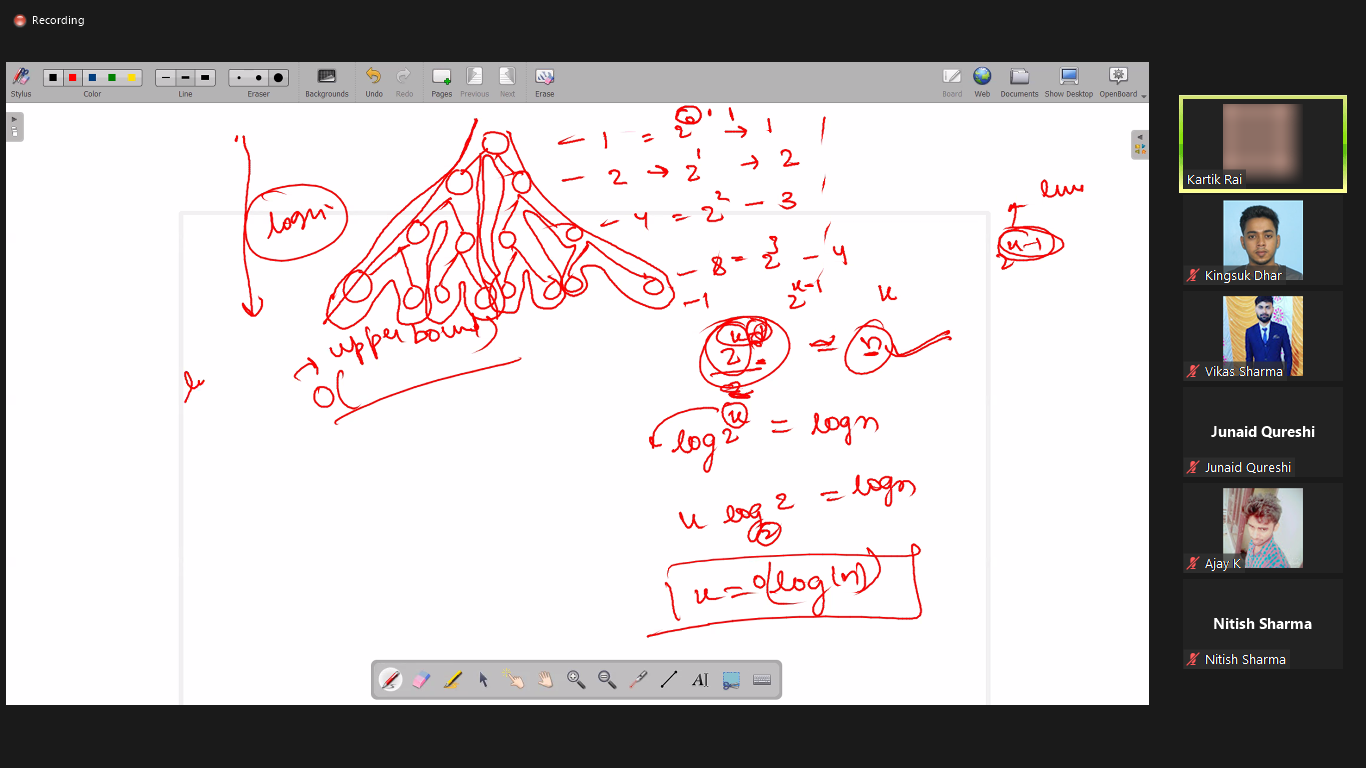 Recording
Stylus
Color
Line
Eraser
Backgrounds
Undo
Redo
Pages
Previous
Next
Erase
Board
Web
Documents
Show Desktop
OpenBoard
← 1 = 2^0 → 1
– 2 → 2^1 → 2
– 4 = 2^2 – 3
– 8 = 2^3 – 4
– 1 2^x-1 x
logn
upper bound
O(
2^x ≃ n
log 2^x = log n
x log 2 = log n
2
x = O(log(n))
x-1
AI
Kartik Rai
Kingsuk Dhar
Vikas Sharma
Junaid Qureshi
Junaid Qureshi
Ajay K
Nitish Sharma
Nitish Sharma